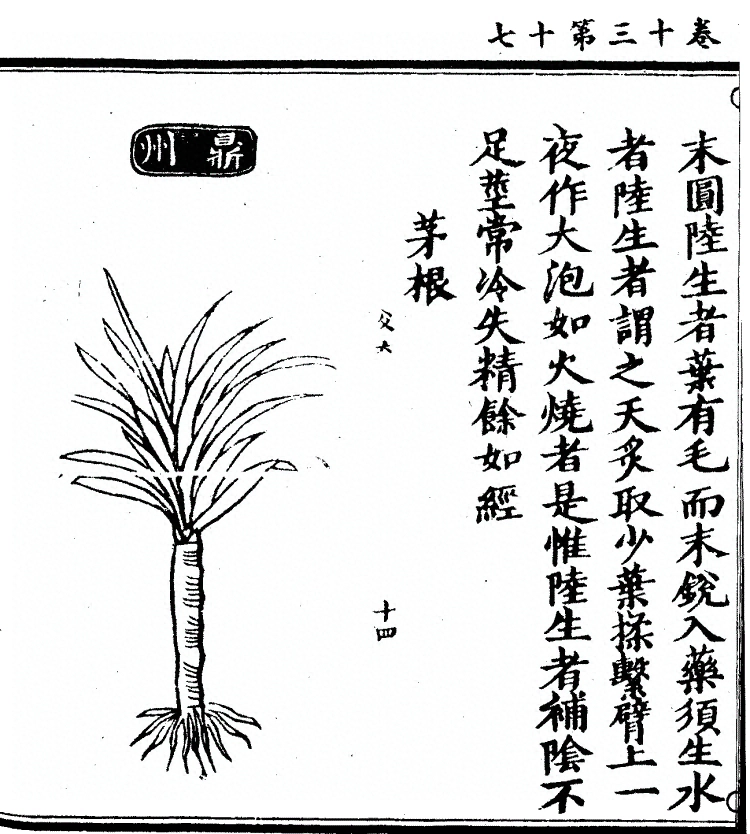 卷十三第十七
末圓陸生者葉有毛而末銳入藥須生水
者陸生者謂之天炙取少葉揉繫臂上一
夜作大泡如火燒者是惟陸生者補陰不
足莖常冷失精餘如經
茅根
十四
鼎州